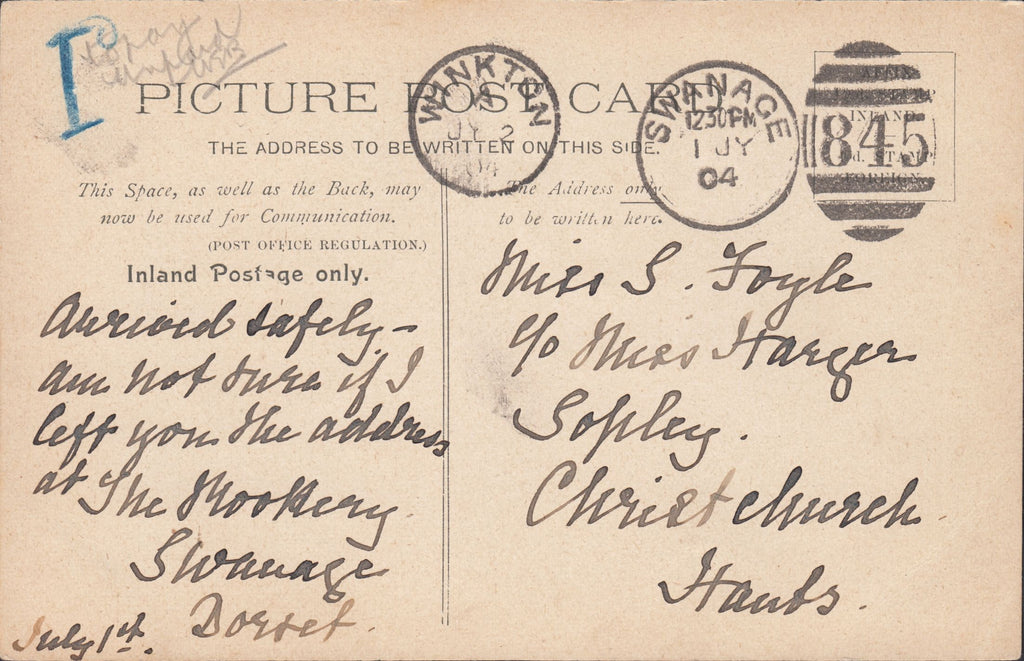 I
PICTURE POST CARD
THE ADDRESS TO BE WRITTEN ON THIS SIDE.
WINKTON
A
JY 2
04
SWANAGE
12 30 PM
1 JY
04
845
INLAND
d. STAMP
FOREIGN
This Space, as well as the Back, may
now be used for Communication.
(POST OFFICE REGULATION.)
Inland Postage only.
The Address only
to be written here.
Arrived safely –
am not sure if I
left you the address
at The Rookery
Swanage
Dorset.
July 1st.
Miss S. Foyle
c/o Miss Harger
Sopley.
Christchurch
Hants.